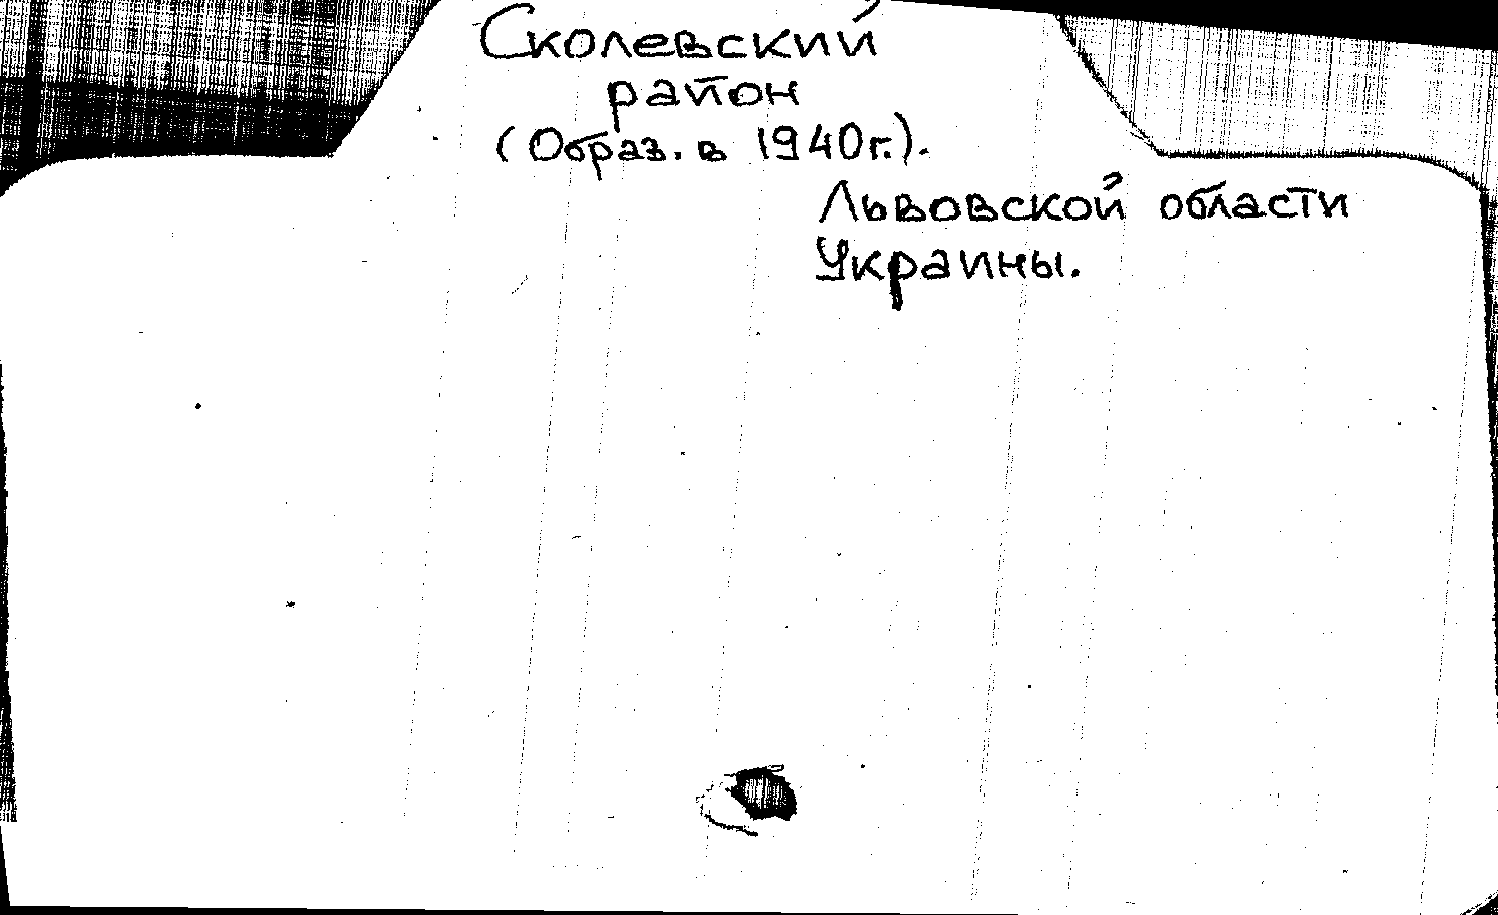 Сколевский
район
(Образ. в 1940г.).
Львовской области
Украины.